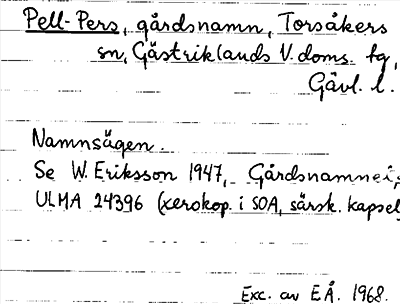 Pell-Pers, gårdsnamn, Torsåkers
sn, Gästriklands V. doms. tg,
Gävl. l.
Namnsägen.
Se W. Eriksson 1947, Gårdsnamnet,
ULMA 24396 (xerokop. i SOA, särsk. kapsel
Exc. av E.Å. 1968.